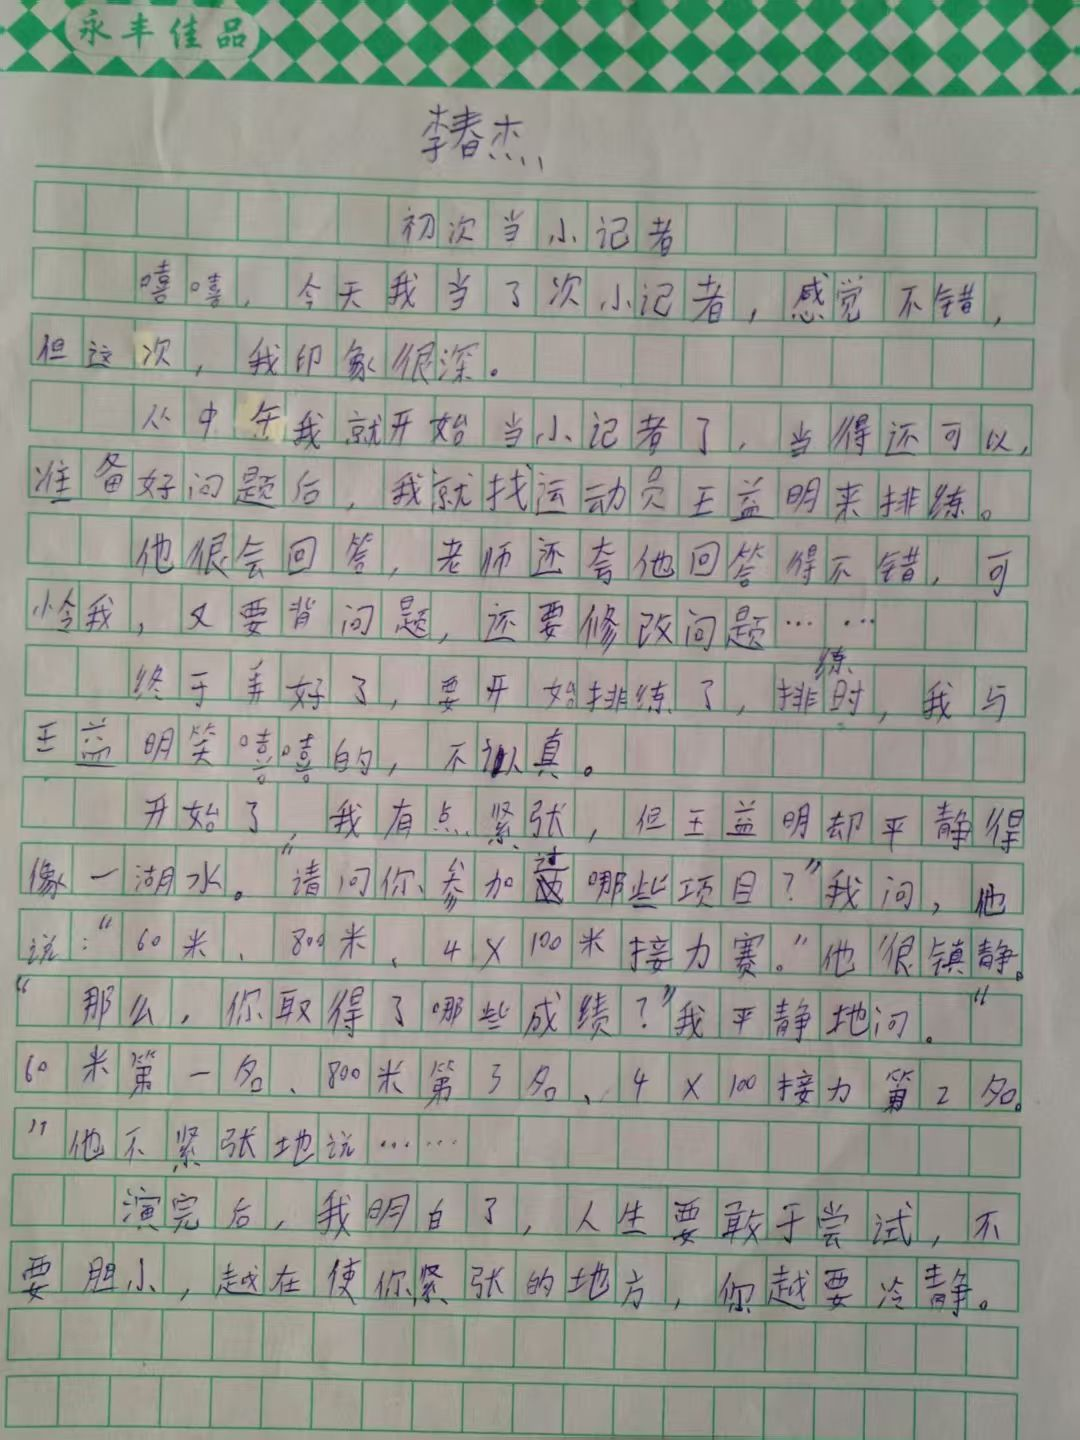 永丰佳品
李春杰
初次当小记者
嘻嘻，今天我当了次小记者，感觉不错，
但这次，我印象很深。
从中午我就开始当小记者了，当得还可以，
准备好问题后，我就找运动员王益明来排练。
他很会回答，老师还夸他回答得不错，可
怜我，又要背问题，还要修改问题……
终于弄好了，要开始排练了，排练时，我与
王益明笑嘻嘻的，不认真。
开始了，我有点紧张，但王益明却平静得
像一湖水。“请问你参加过哪些项目？”我问，他
说：“60米、800米、4×100米接力赛。”他很镇静。
“那么，你取得了哪些成绩？”我平静地问。“
60米第一名、800米第3名、4×100接力第2名。
”他不紧张地说……
演完后，我明白了，人生要敢于尝试，不
要胆小，越在使你紧张的地方，你越要冷静。